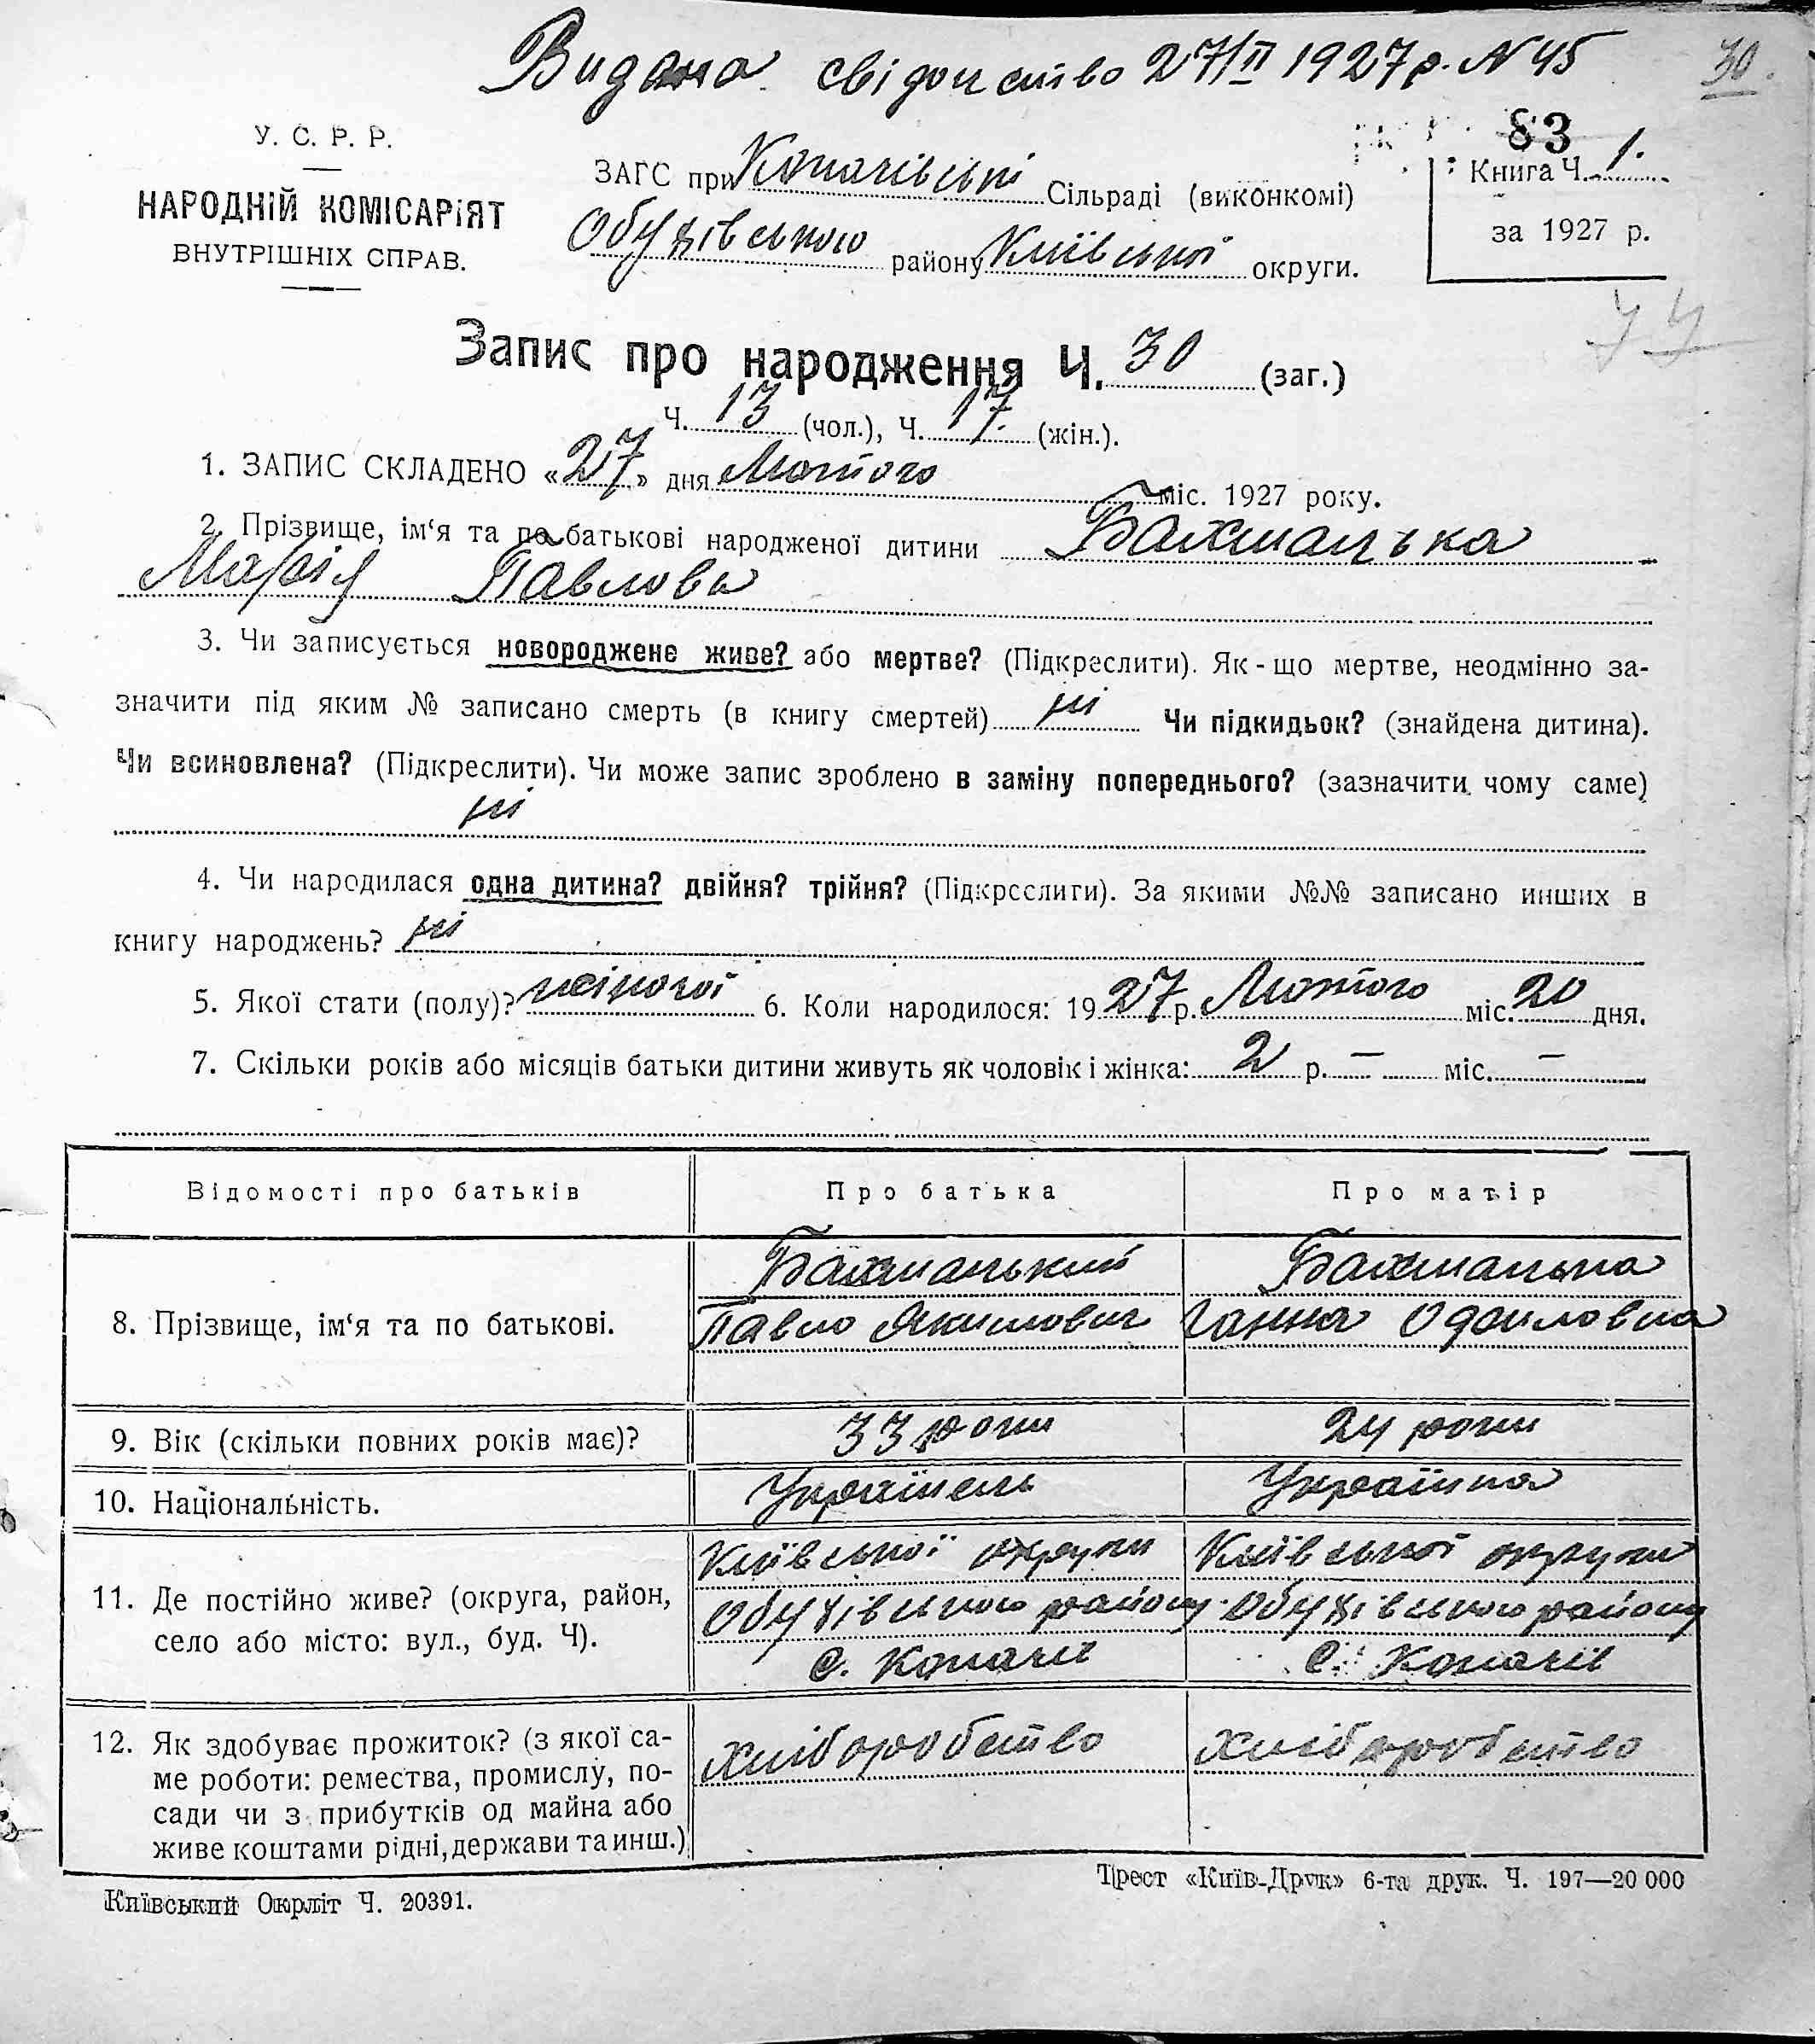 Видана свідоцтво 27/II 1927 р. N 45
30.
У. С. Р. Р.
НАРОДНІЙ КОМІСАРІЯТ
ВНУТРІШНІХ СПРАВ.
ЗАГС при Копачівські Сільраді (виконкомі)
Обухівського району Київської округи.
83
Книга Ч. 1.
за 1927 р.
Запис про народження Ч. 30 (заг.)
Ч. 13 (чол.), Ч. 17. (жін.).
1. ЗАПИС СКЛАДЕНО «27» дня Лютого міс. 1927 року.
2. Прізвище, ім‘я та по батькові народженої дитини Бахманська
Марія Павлова
3. Чи записується новороджене живе? або мертве? (Підкреслити). Як-що мертве, неодмінно за-
значити під яким № записано смерть (в книгу смертей) ні Чи підкидьок? (знайдена дитина).
Чи всиновлена? (Підкреслити). Чи може запис зроблено в заміну попереднього? (зазначити чому саме)
ні
4. Чи народилася одна дитина? двійня? трійня? (Підкреслити). За якими №№ записано инших в
книгу народжень? ні
5. Якої стати (полу)? жіночої 6. Коли народилося: 1927 р. Лютого міс. 20 дня.
7. Скільки років або місяців батьки дитини живуть як чоловік і жінка: 2 р. — міс. —
Відомості про батьків Про батька Про матір
8. Прізвище, ім‘я та по батькові.
Бахманський
Павло Якимович
Бахманська
Ганна
9. Вік (скільки повних років має)? 33 роки 24 роки
10. Національність. Українець Українка
11. Де постійно живе? (округа, район,
село або місто: вул., буд. Ч).
Київської округи
Обухівського району
с. Копачів
Київської округи
Обухівського району
с. Копачів
12. Як здобуває прожиток? (з якої са-
ме роботи: ремества, промислу, по-
сади чи з прибутків од майна або
живе коштами рідні, держави та инш.)
хліборобство
хліборобство
Київський Окрліт Ч. 20391.
Трест «Київ-Друк» 6-та друк. Ч. 197—20 000